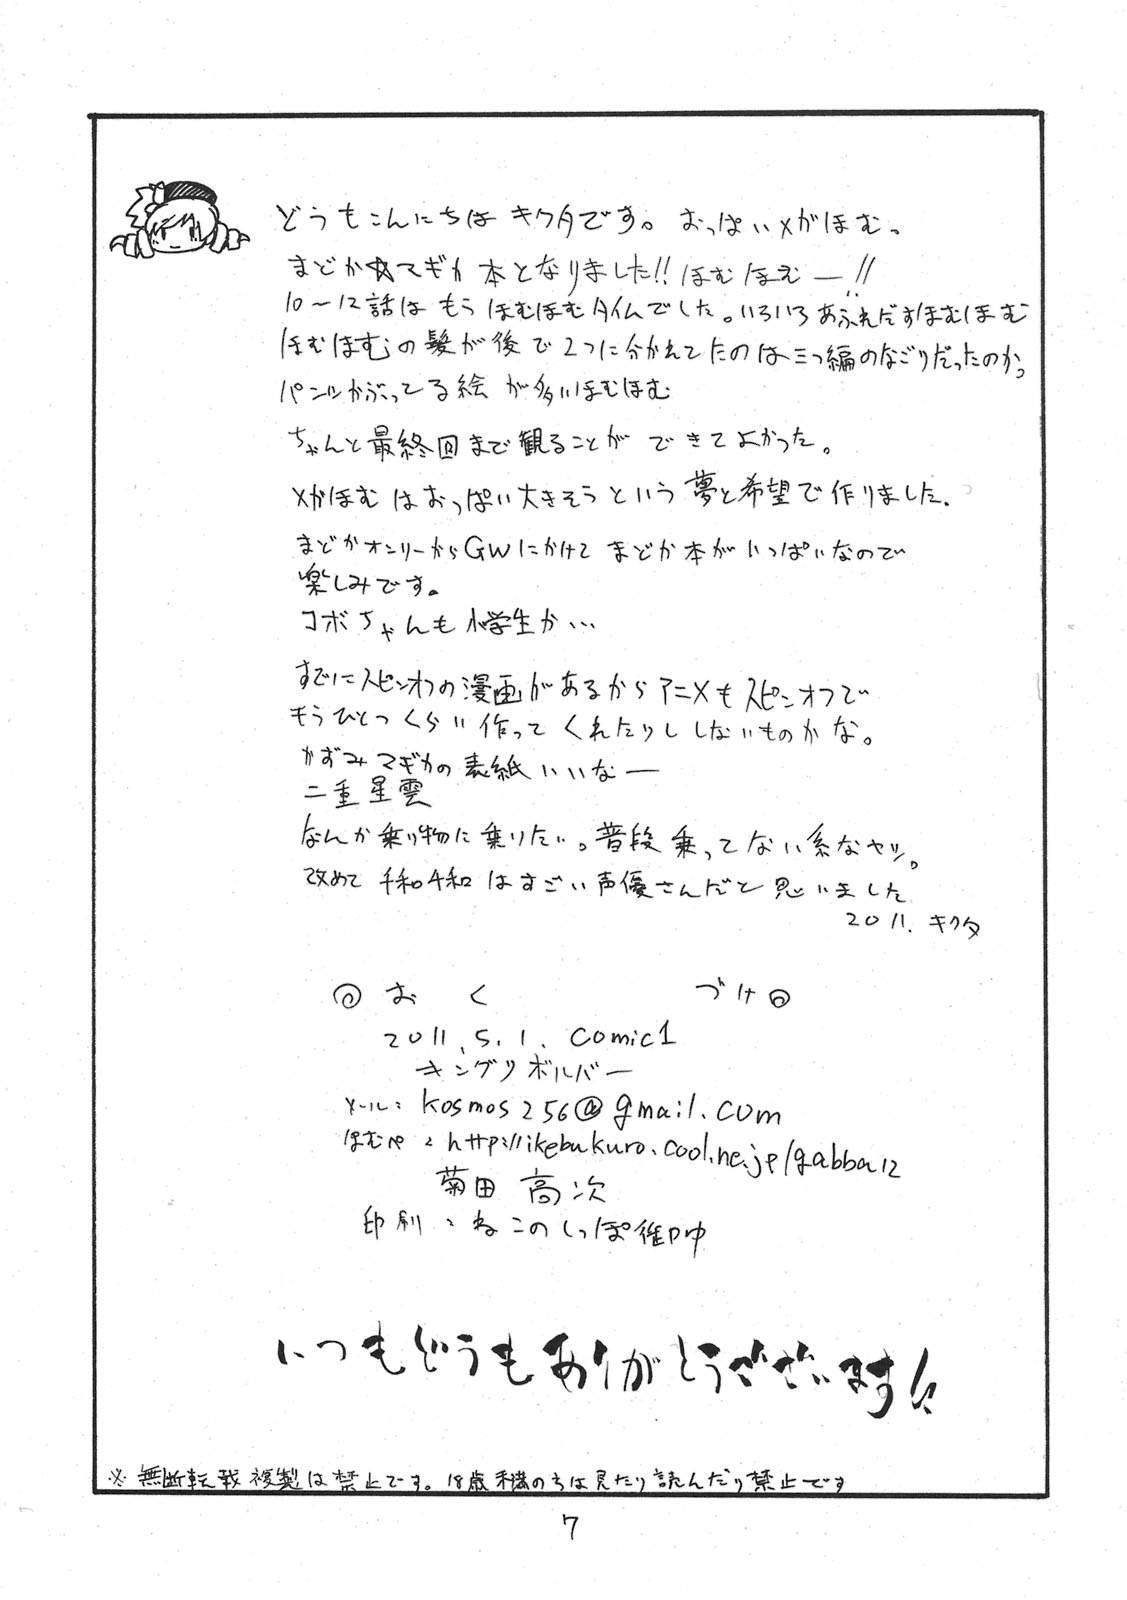 どうもこんにちは キクタです。 おっぱいメがほむっ
まどか☆マギカ 本となりました!! ほむほむー!!
10〜12話は もう ほむほむタイムでした。いろいろあふれだすほむほむ
ほむほむの髪が後で2つに分かれてたのは三つ編のなごりだったのかっ
パンツかぶってる絵 が多いほむほむ
ちゃんと最終回まで観ることが できてよかった。
メがほむはおっぱい大きそうという夢と希望で作りました.
まどかオンリーからGWにかけて まどか本がいっぱいなので
楽しみです。
コボちゃんも小学生か…
すでにスピンオフの漫画があるからアニメもスピンオフで
もうひとつくらい作ってくれたりししないものかな。
かずみマギカの表紙いいなー
二重星雲
なんか乗り物に乗りたい。普段乗ってない系なヤツ。
改めて 千和千和はすごい声優さんだと思いました
2011. キクタ
◎おく づけ◎
2011.5.1. comic1
キングリボルバー
メール: kosmos256@gmail.com
ほむぺ : http://ikebukuro.cool.ne.jp/gabba12
菊田 高次
印刷 : ねこのしっぽ御中
いつもどうもありがとうございます!!
※無断転載複製は禁止です。18歳未満のちは見たり読んだり禁止です
7